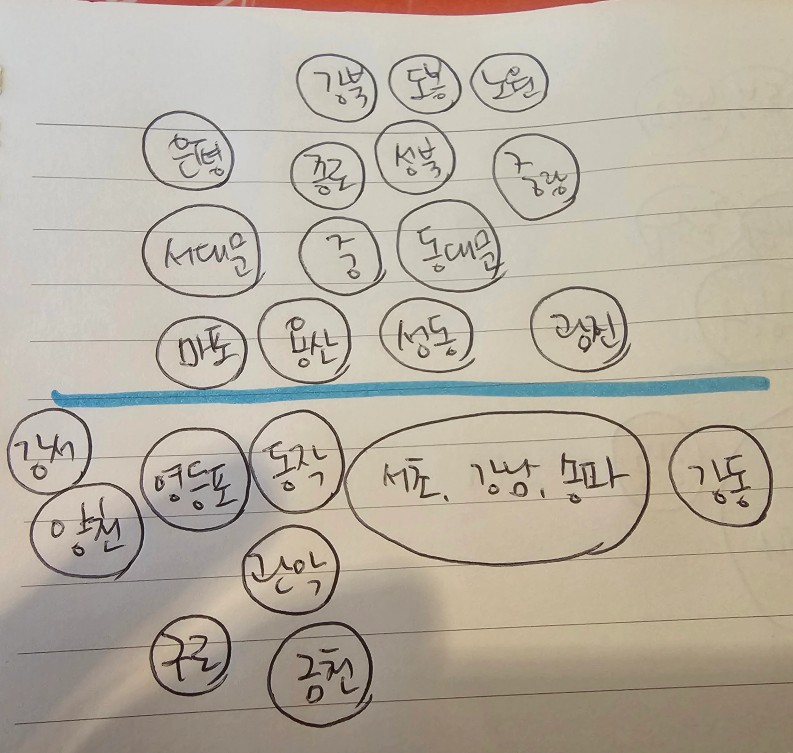 강북 도봉 노원
은평 종로 성북 중랑
서대문 중 동대문
마포 용산 성동 광진
강서 영등포 동작 서초, 강남, 송파 강동
양천
관악
구로 금천